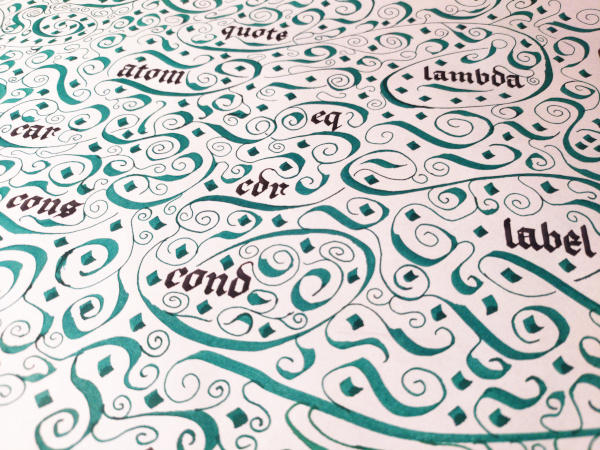 quote
atom
lambda
car
eq
cdr
cons
label
cond